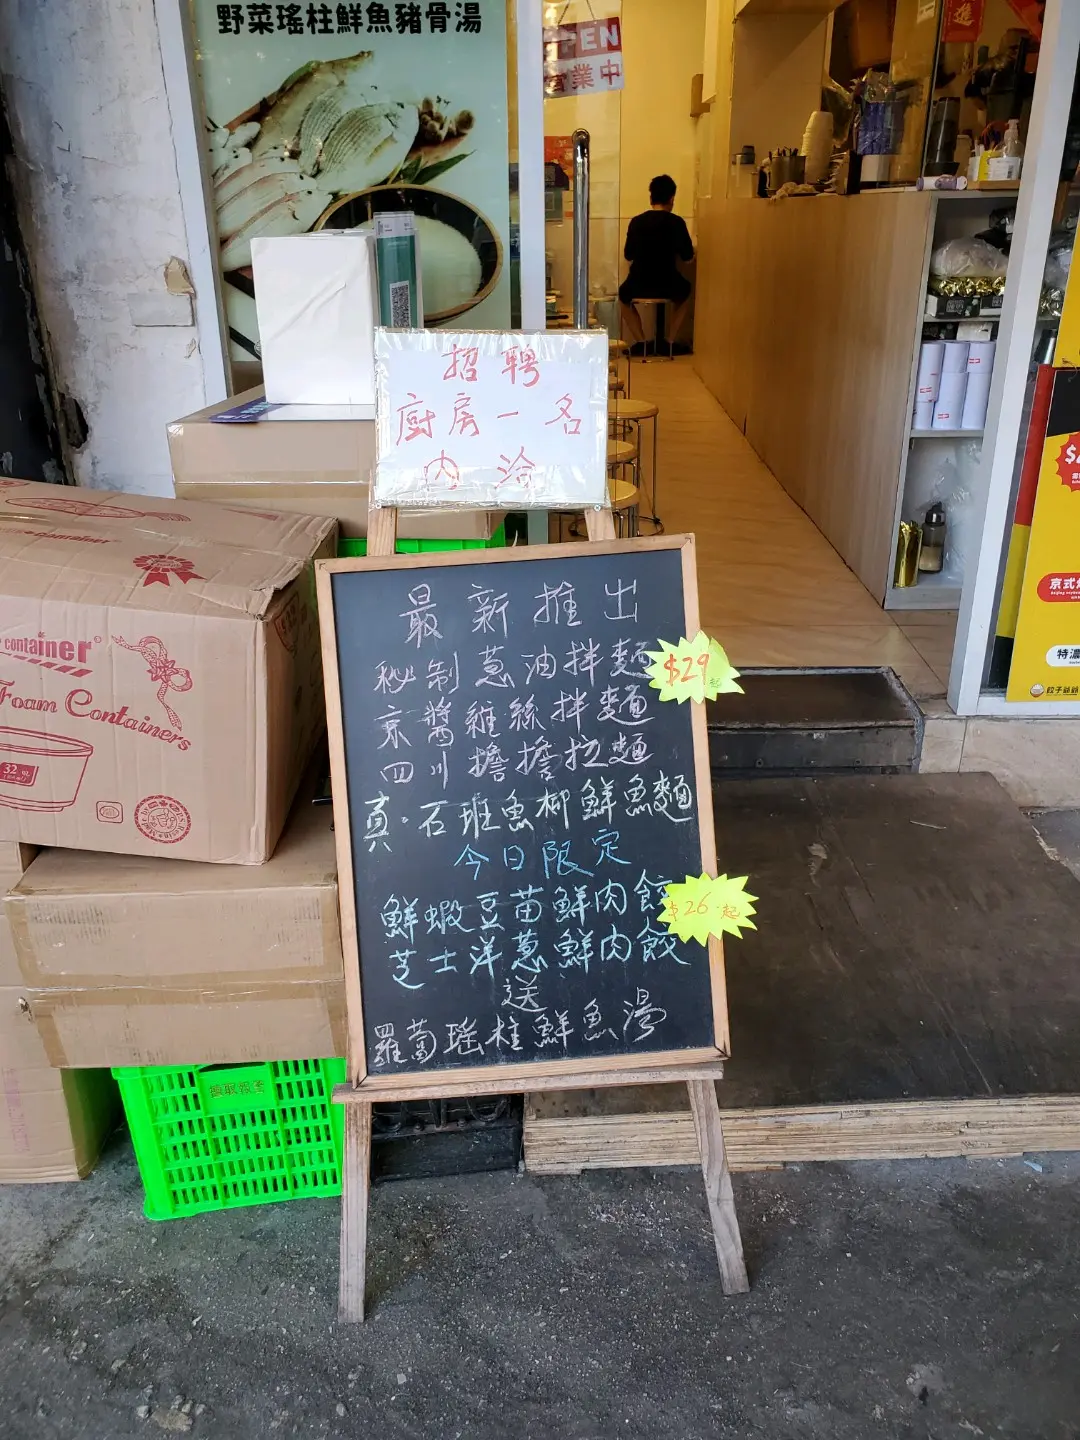 野菜瑤柱鮮魚豬骨湯
OPEN
營業中
招聘
廚房一名
內洽
最新推出
秘制蔥油拌麵
$29起
京醬雞絲拌麵
四川擔擔拉麵
真·石班魚柳鮮魚麵
今日限定
鮮蝦豆苗鮮肉餃
$26起
芝士洋蔥鮮肉餃
送
羅蔔瑤柱鮮魚湯
container
Foam Containers
32
京式
特濃
餃子爺爺